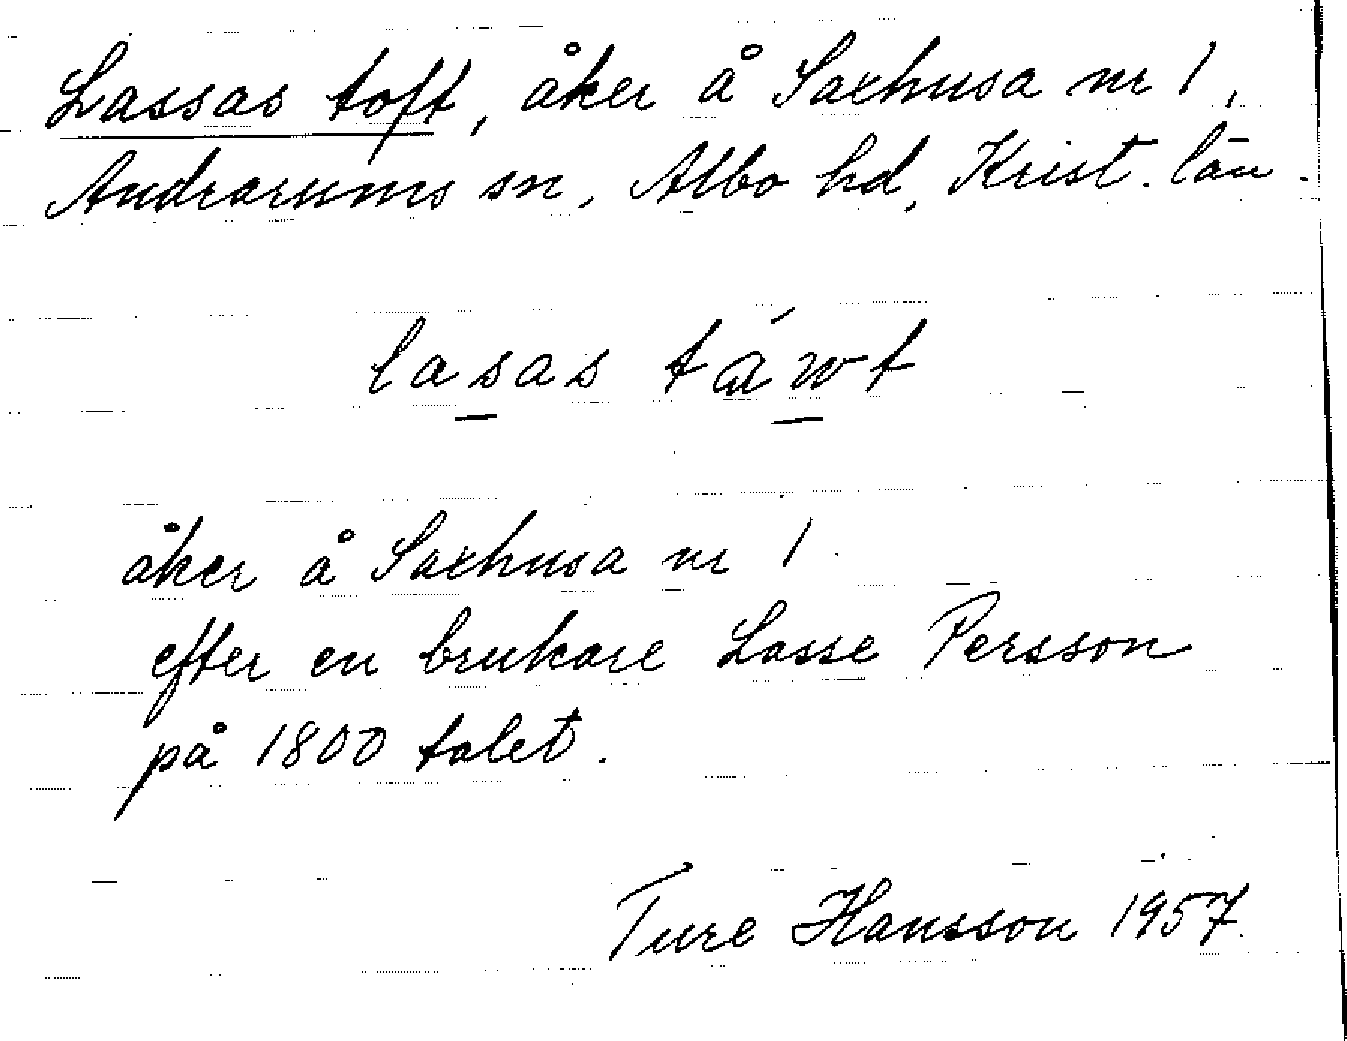 Lassas toft, åker å Saxhusa nr 1,
Andrarums sn, Albo hd, Krist. län.
lasas táwt
åker å Saxhusa nr 1.
efter en brukare Lasse Persson
på 1800 talet.
Ture Hansson 1957.